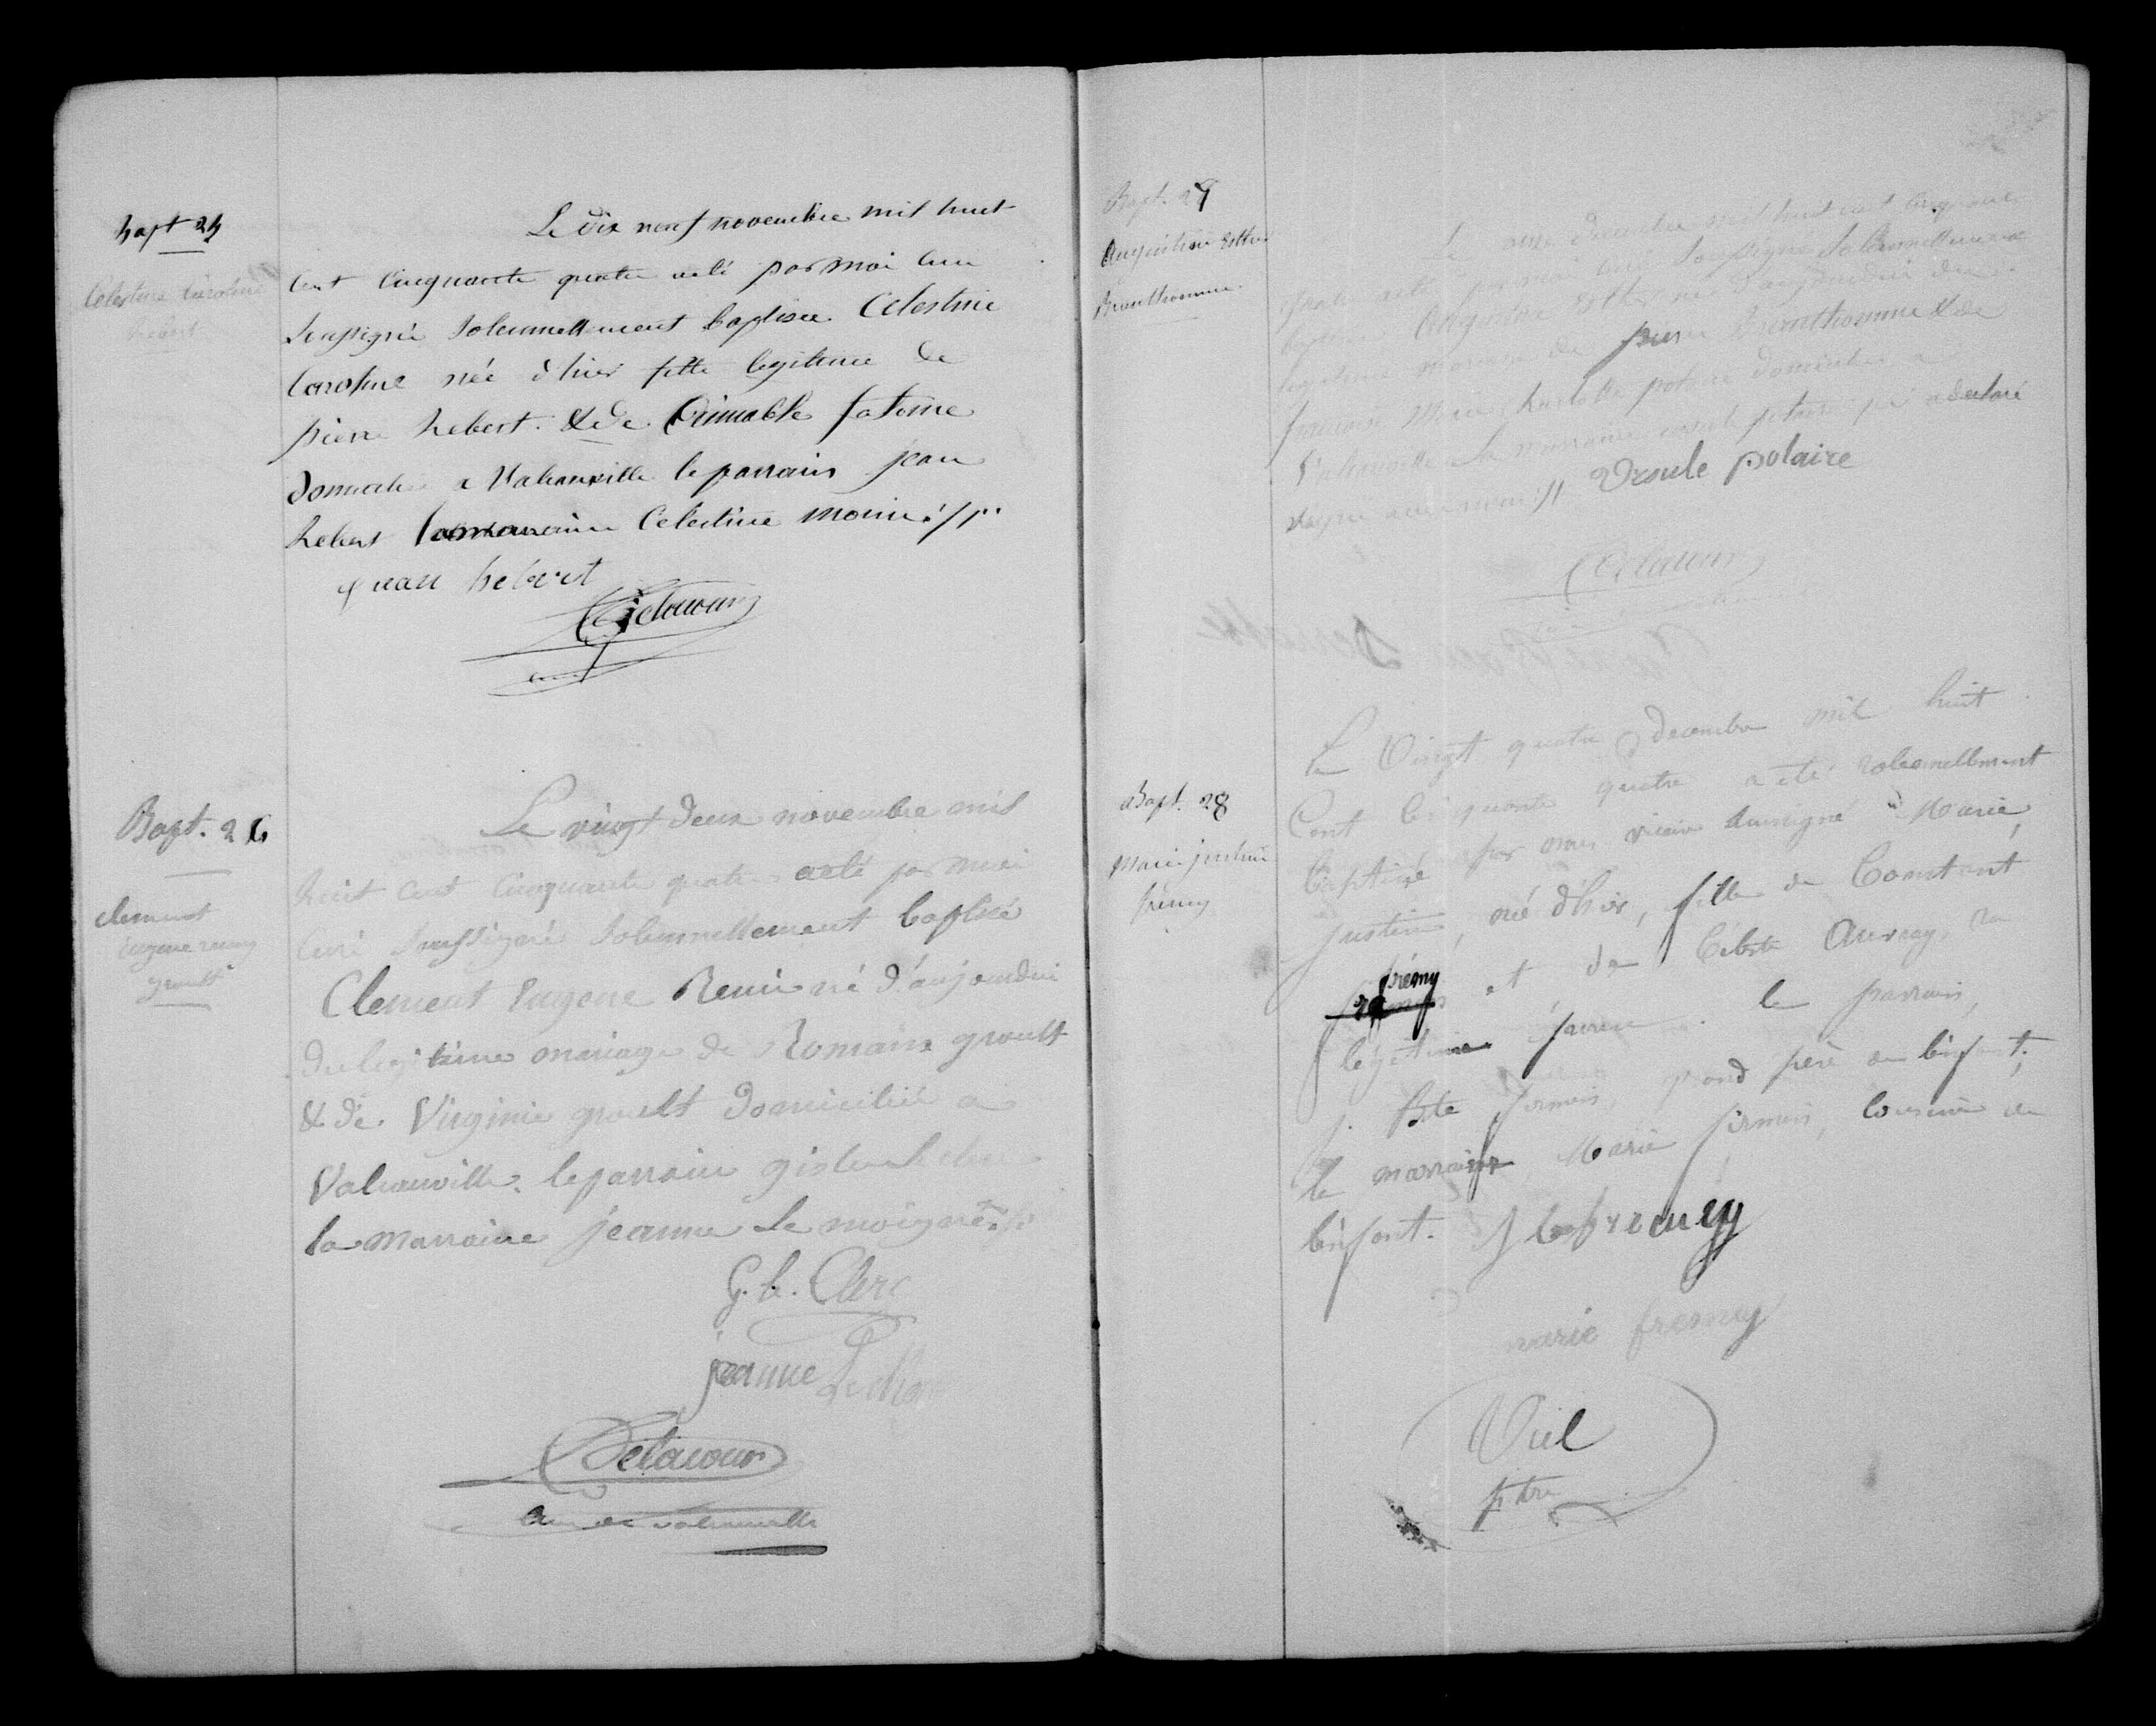 Bapt 25
Celestine Caroline
hebert
Le dix neuf novembre mil huit
cent cinquante quatre a été par moi curé
soussigné solennellement baptisée Celestine
Caroline née d'hier fille legitime de
pierre hebert & de Aimable fatome
domiciliés a Valcanville le parrain jean
hebert la marraine Celestine moine
jean hebert
Delacour
curé
Bapt. 26
clement
Eugene remy
groult
Le vingt deux novembre mil
huit cent cinquante quatre a été par moi
curé soussigné solennellement baptisé
Clement Eugene Remi né d'aujourdui
du legitime mariage de Romain groult
& de Virginie groult domiciliés a
Valcanville. le parrain
la marraine jeanne le moigne
G. b. Clerc
jeanne
Delacour
curé de valcanville
Bapt. 27
Augustine Esther
Brunthomme
Le onze decembre mil huit cent cinquante
quatre a été par moi curé soussigné solennellement
baptisée Augustine Esther née d'aujourdui du
legitime mariage de pierre Brunthomme & de
françoise Marie polaire domiciliés a
Valcanville la marraine ursule polaire qui a declaré
Ursule polaire
Delacour
Bapt. 28
Marie justine
fremy
Le Vingt quatre decembre mil huit
Cent Cinquante quatre a été solennellement
baptisé par nous vicaire soussigné Marie,
Justine, né d'hier, fille de Constant
frémy et de Céleste Auvray, en
légitime le parrain,
j. Bte firmin, grand père de l'enfant;
la marraine, Marie firmin, cousine de
l'enfant. J b fremy
marie fremy
Viel
ptre